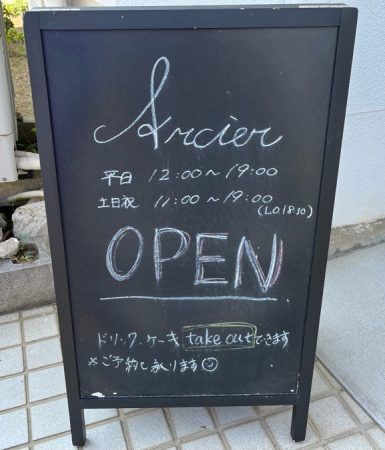 Arcier
平日 12:00～19:00
土日祝 11:00～19:00
(L.O 18:30)
OPEN
ドリンク、ケーキ take outできます
※ご予約も承ります☺